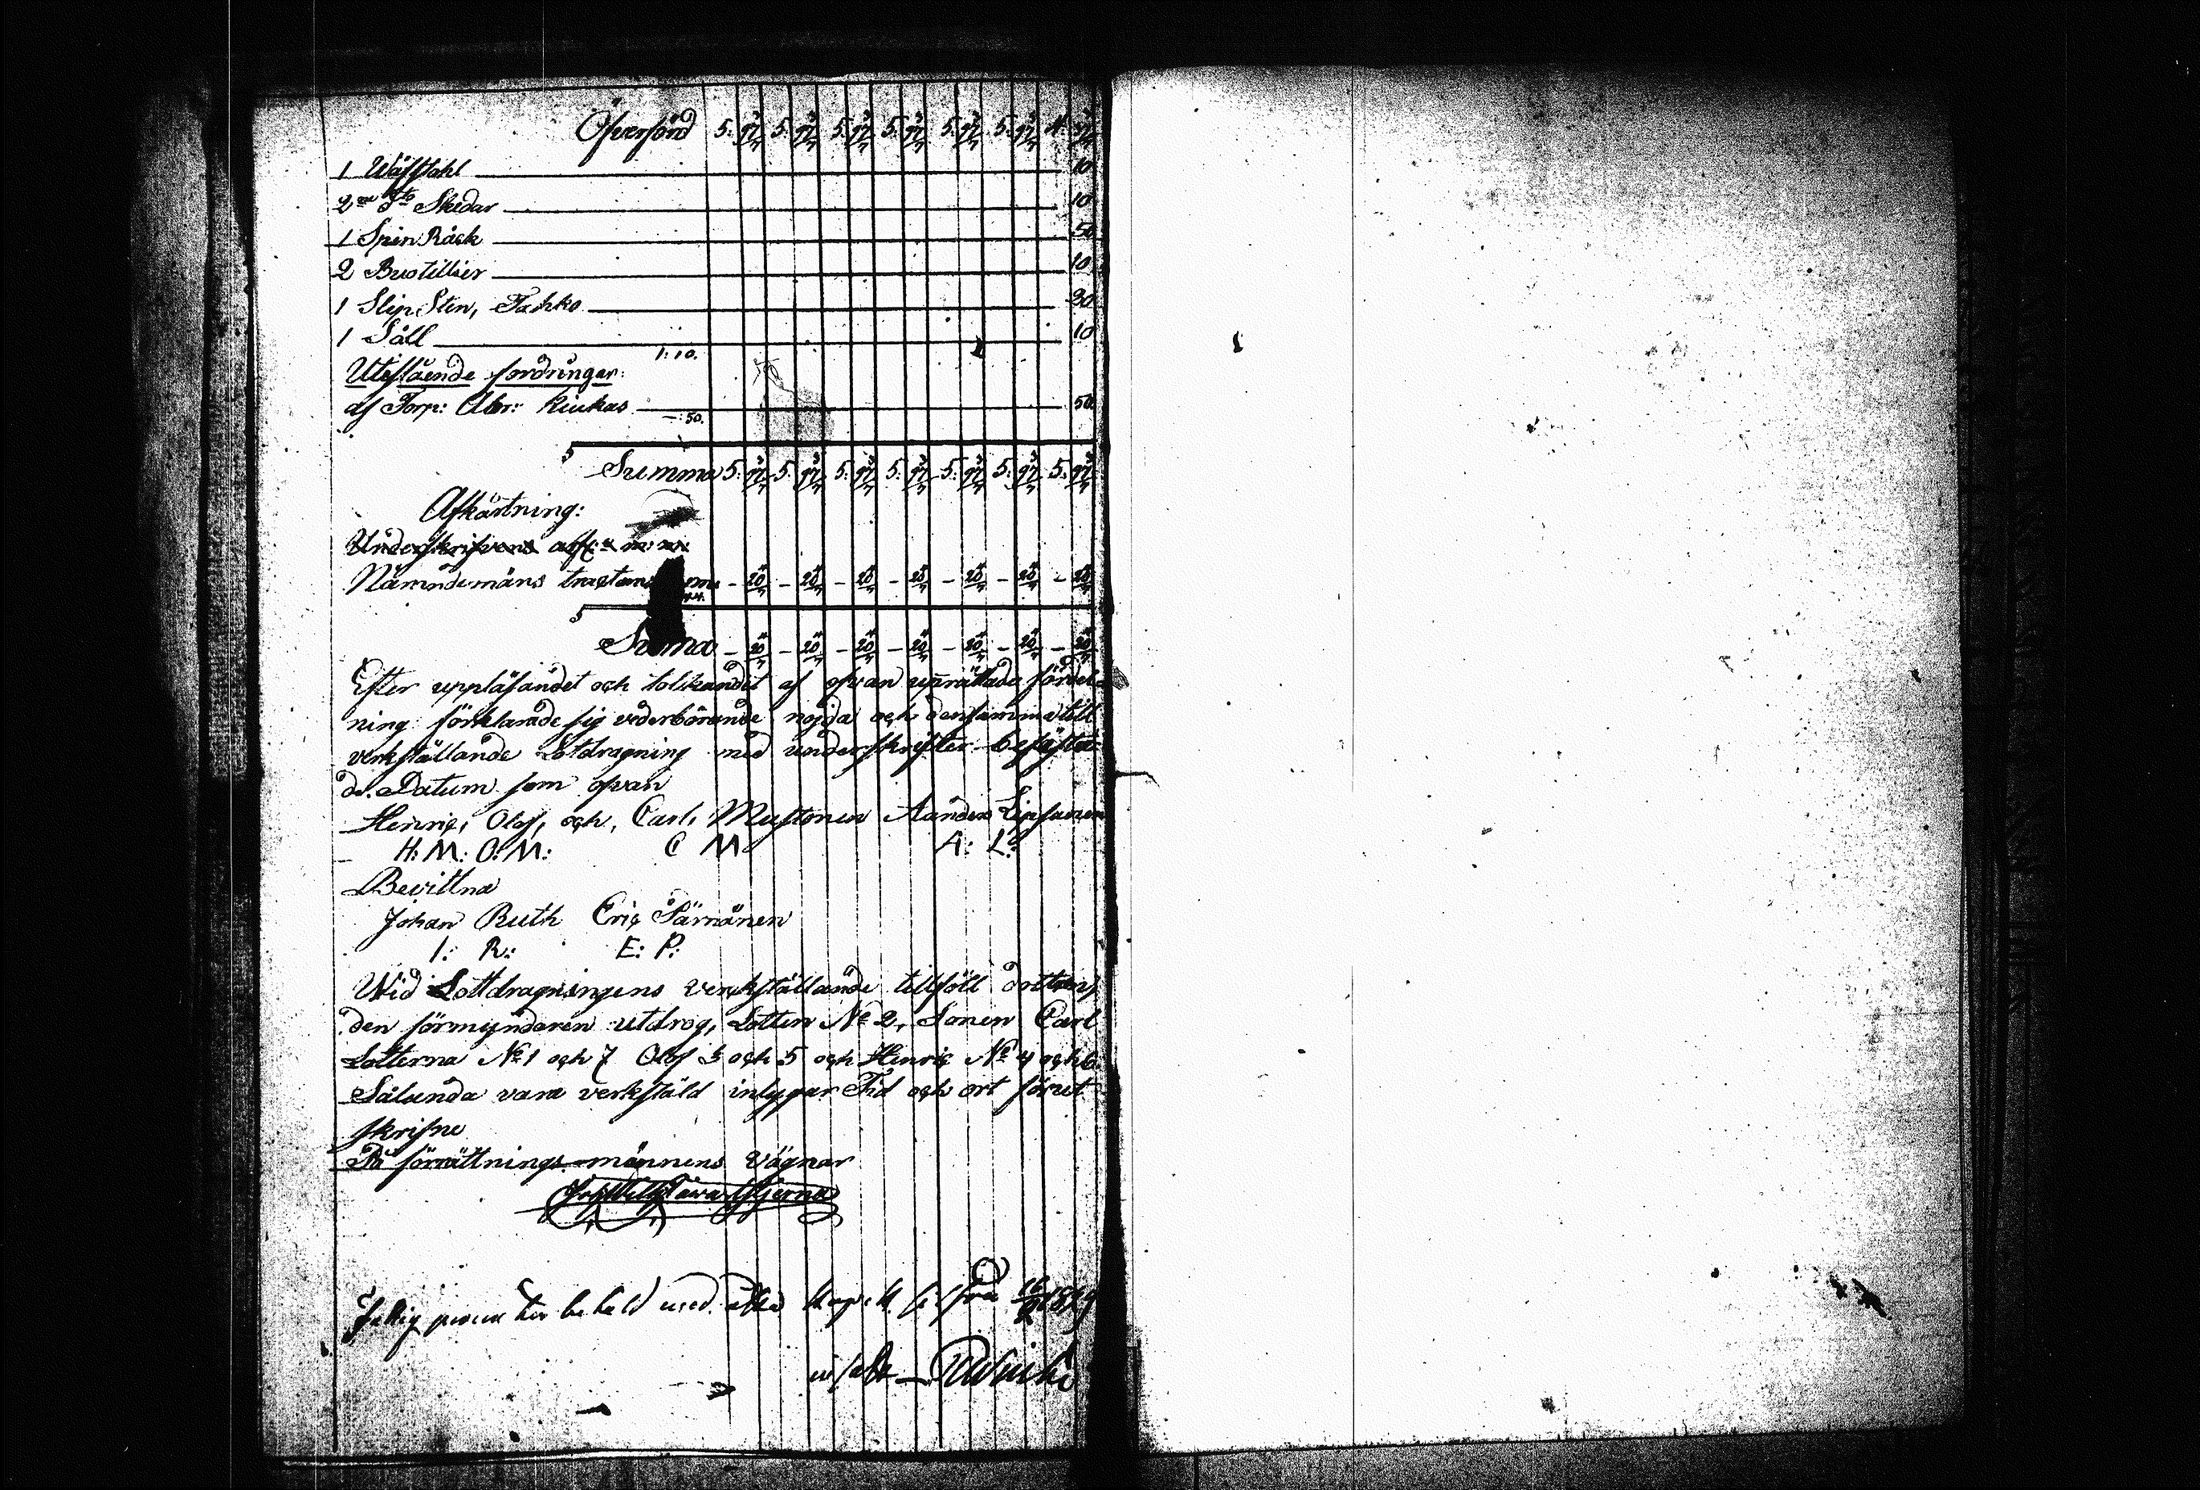 Öfverförd 5. 97 3/7 5. 97 3/7 5. 97 3/7 5. 97 3/7 5. 97 3/7 5. 97 3/7 4.
1 Wäfstahl 10
2ne Dto Skedar 10
1 Spin Råck 50
2 Buotillier 10
1 Slip Sten, Tahko 30
1 Såll 10
1: 10.
Utestående fordringar:
af Torp: Abr: Kiukas 50
—: 50.
Summa 5. 97 3/7 5. 97 3/7 5. 97 3/7 5. 97 3/7 5. 97 3/7 5. 97 3/7 5. 97 3/7
Afkårtning:
Underskrifvens m: m:
Nämndemäns – 20 4/7 – 20 4/7 – 20 4/7 – 20 4/7 – 20 4/7 – 20 4/7 – 20 4/7
Summa – 20 4/7 – 20 4/7 – 20 4/7 – 20 4/7 – 20 4/7 – 20 4/7 – 20 4/7
Efter uppläsandet och tolkandet af ofvan upprättade fördel-
ning förklarade sig vederbörande nöjda och densamma till
verkställande Lotdragning med underskrifter befäste-
de. Datum som ofvan
Henric, Olof, och, Carl, Mustonen Anders Lipsanen
H: M: O: M: C M A: L:
Bevittna
Johan Ruth Eric Pärnänen
I: R: E: P:
Wid Lottdragningens verkställande tillföll
den förmyndaren utdrog, Lotten No 2, Sonen Carl
Lotterna No 1 och 7 Olof 3 och 5 och Henric No 4 och 6.
Sålunda vara verkställd intygar Tid och ort förut
skrifne
På förrättnings männens vägnar